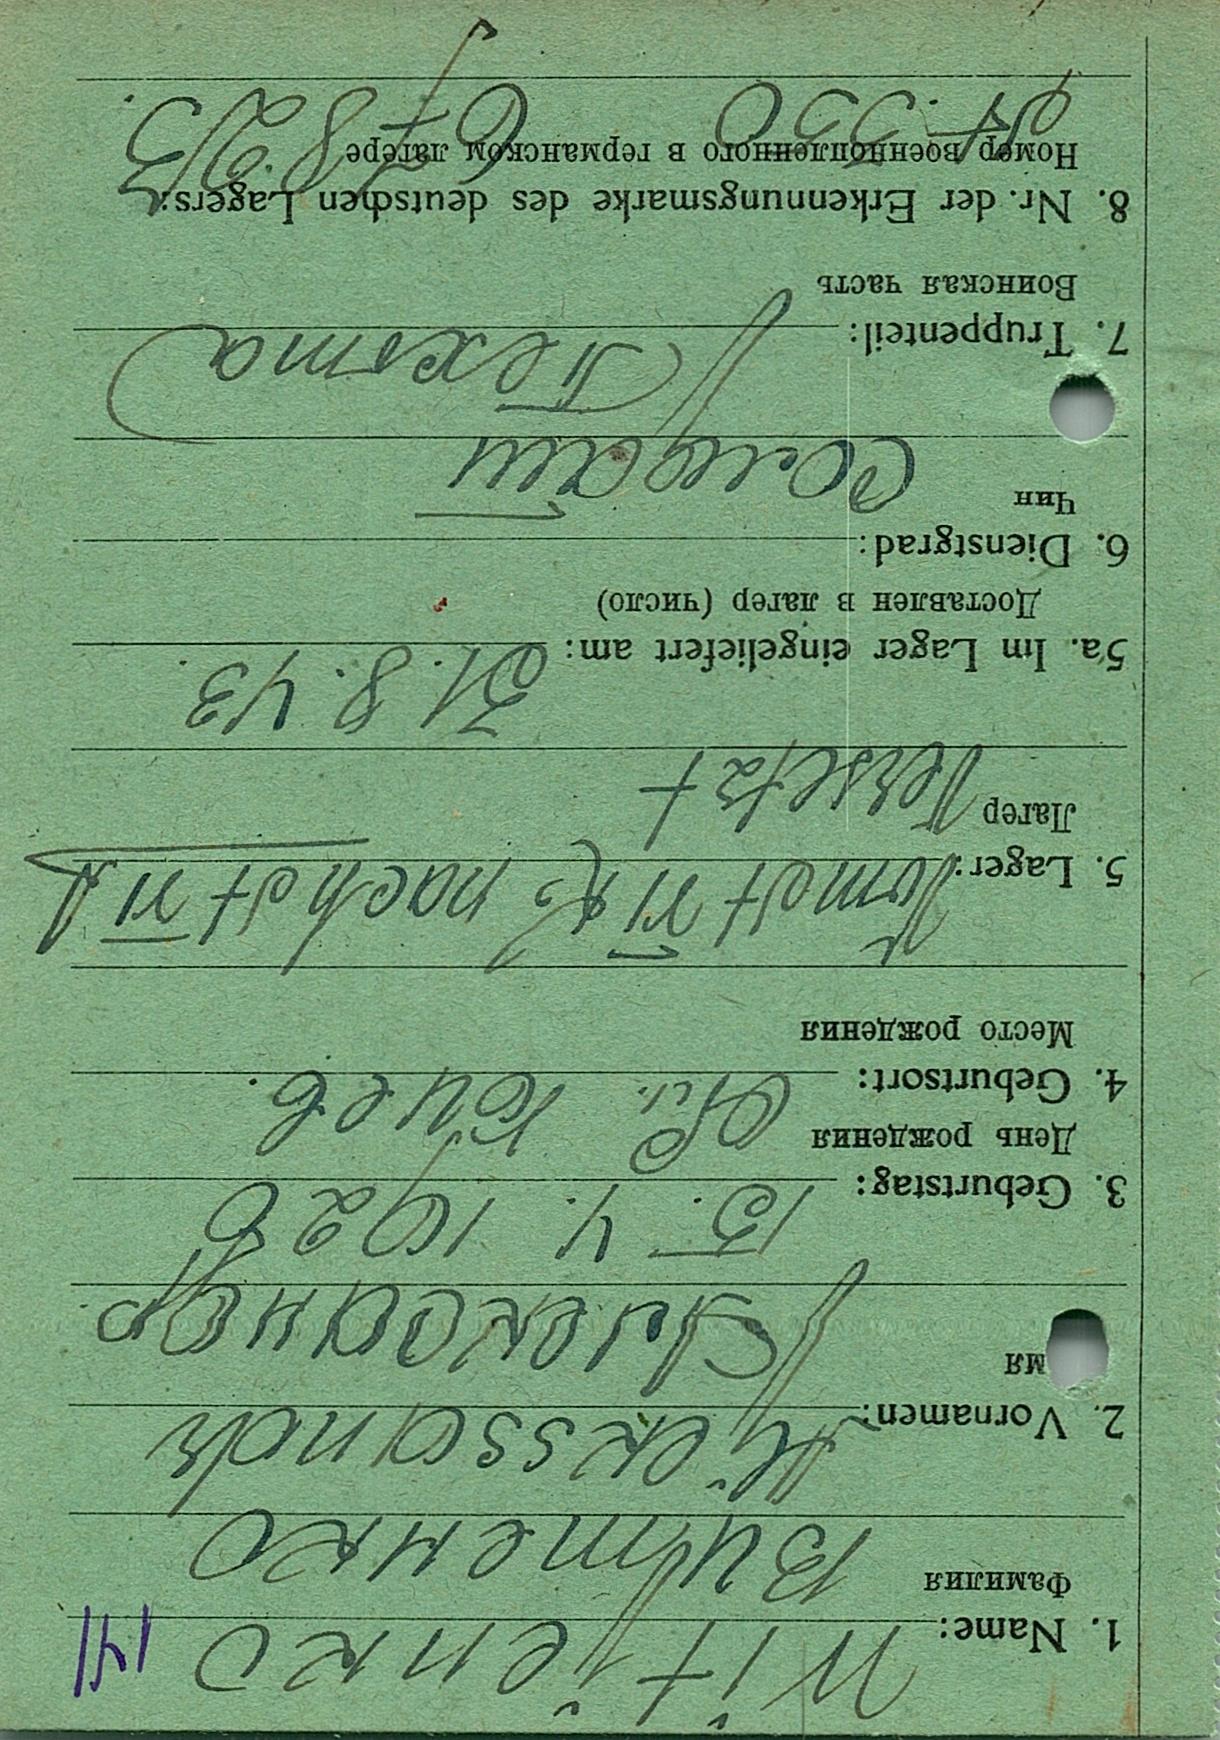 141
1. Name: Witjenko
Фамилия Витенко
2. Vornamen: Alekssandr
мя Александр
3. Geburtstag: 15. 4. 1926
День рождения
4. Geburtsort: Киев.
Место рождения
5. Lager: Vom St VI K nach St VI A
Лагерь Versetzt
5a. Im Lager eingeliefert am: 31. 8. 43.
Доставлен в лагер (число)
6. Dienstgrad:
Чин Солдат
7. Truppenteil: Пехота
Воинская часть
8. Nr. der Erkennungsmarke des deutschen Lagers:
Номер военнопленного в германском лагере
St. 350